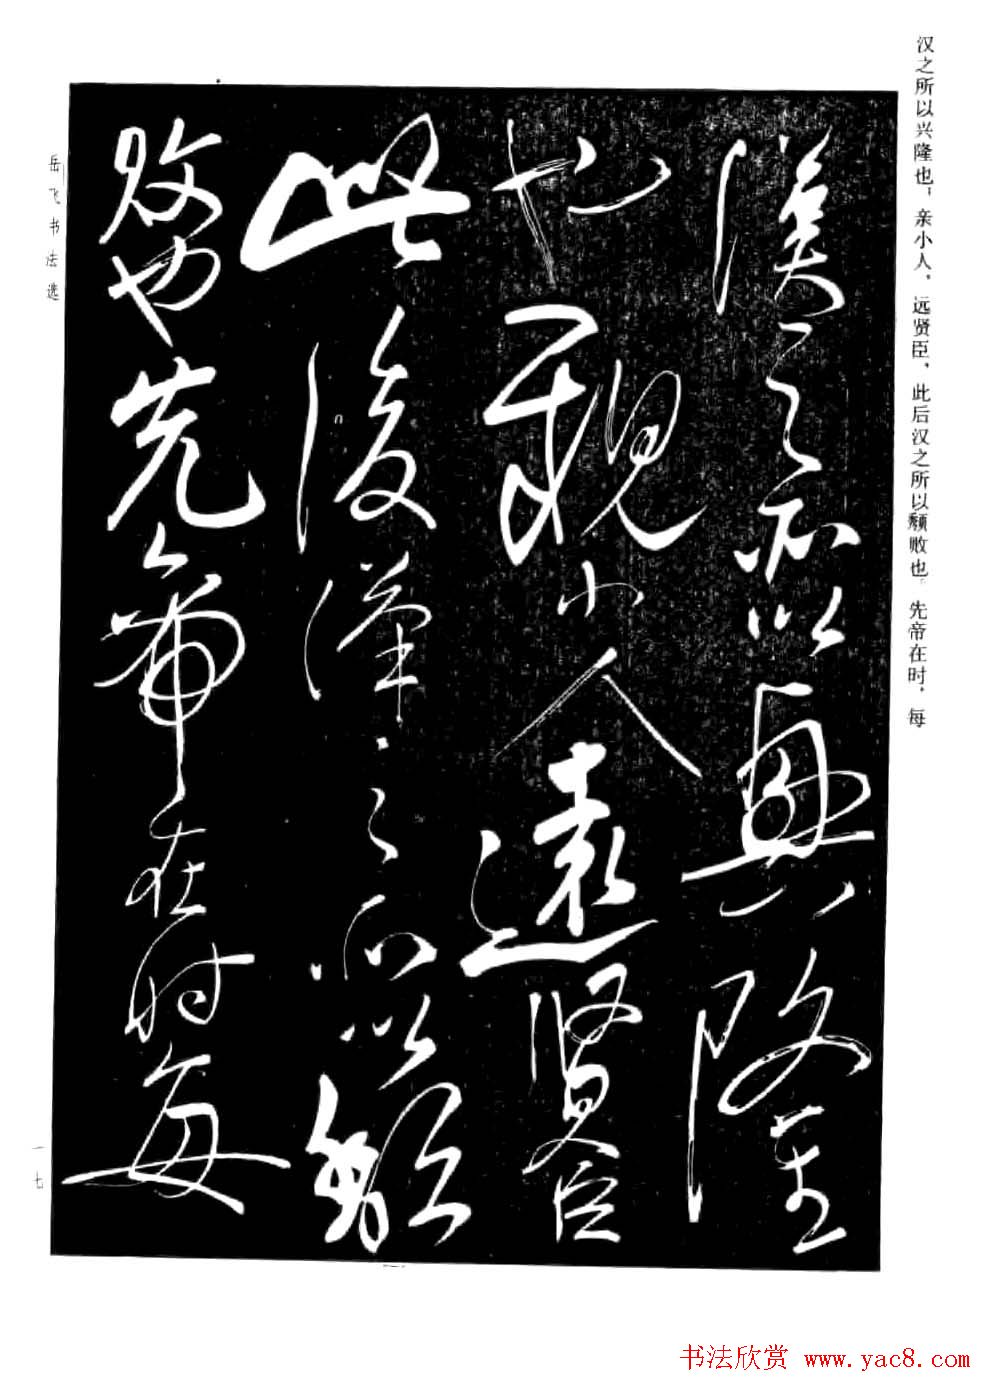 汉之所以兴隆也；亲小人，远贤臣，此后汉之所以颓败也。先帝在时，每
漢之所以興隆
也親小人遠賢臣
此後漢之所以頹
敗也先帝在时每
岳飞书法选
一七
书法欣赏 www.yac8.com